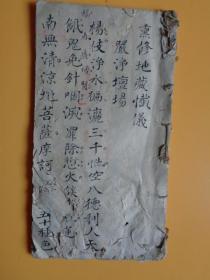 熏修地藏懺儀
嚴淨壇場
楊枝淨水徧灑三千性空八德利人天
餓鬼免針咽滅罪除愆火燄
南無清涼地菩薩摩訶